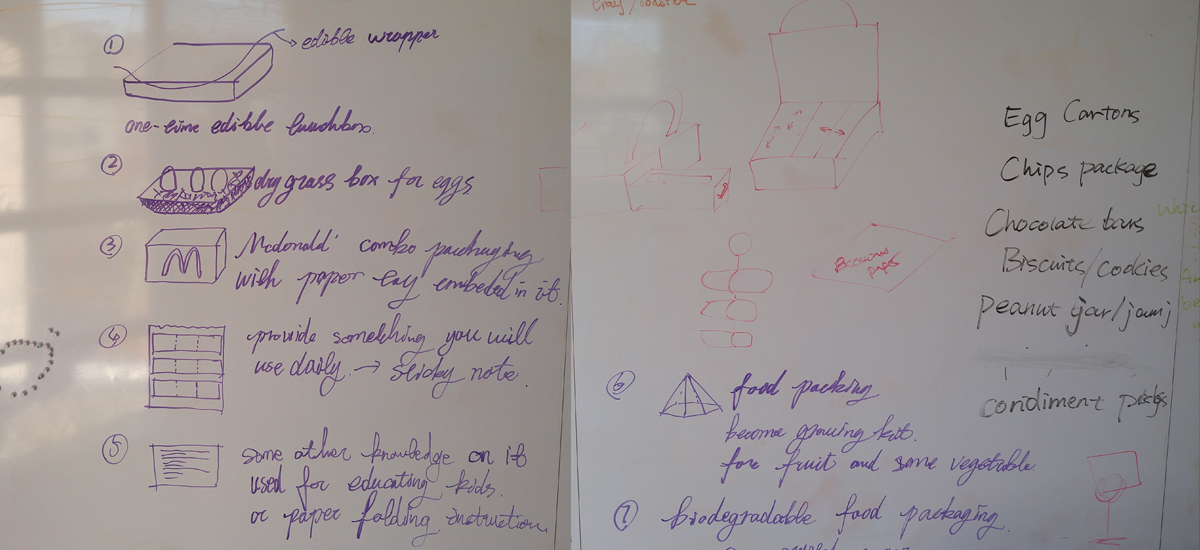 ① edible wrapper
one-time edible lunchbox.
② dry grass box for eggs
③ Mcdonald' combo packaging
with paper embeded in it.
④ provide something you will
use daily → sticky note
⑤ some other knowledge on it
used for educating kids.
or paper folding instruction
tray/coaster
⑥ food packing
become growing kit.
for fruit and some vegetable
⑦ biodegradable food packaging.
Egg Cartons
Chips package
Chocolate bars
Biscuits/cookies
peanut jar/
condiment